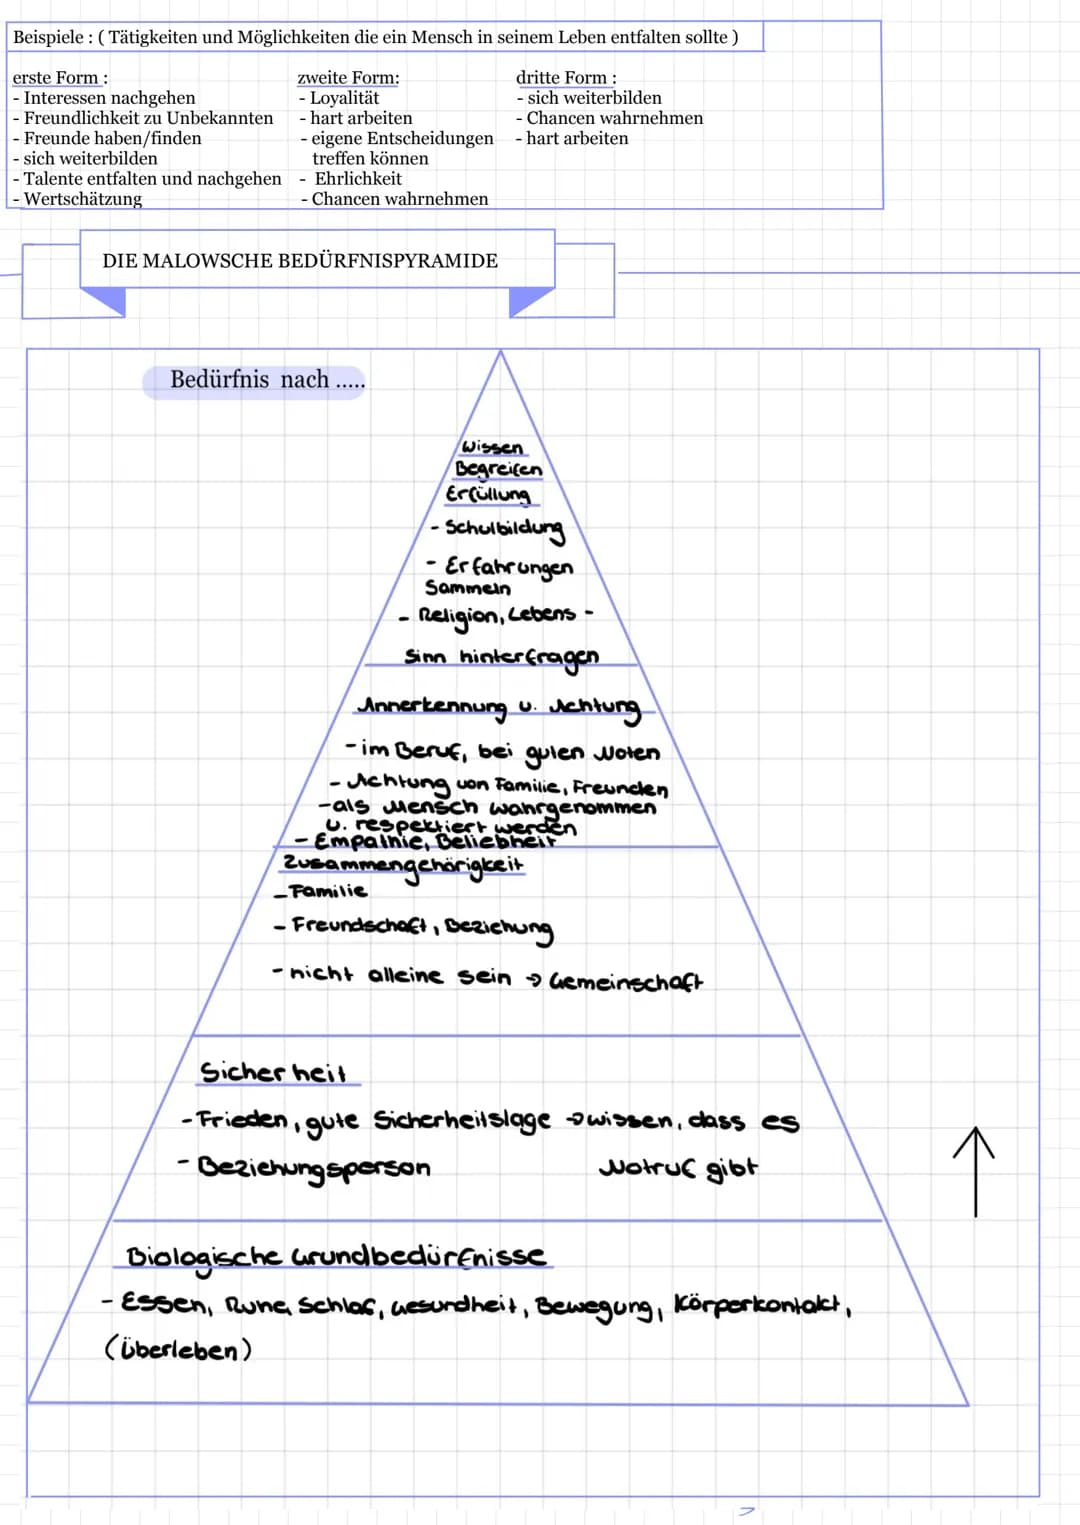 Beispiele : ( Tätigkeiten und Möglichkeiten die ein Mensch in seinem Leben entfalten sollte )
erste Form :
- Interessen nachgehen
- Freundlichkeit zu Unbekannten
- Freunde haben/finden
- sich weiterbilden
- Talente entfalten und nachgehen
- Wertschätzung
zweite Form:
- Loyalität
- hart arbeiten
- eigene Entscheidungen
treffen können
- Ehrlichkeit
- Chancen wahrnehmen
dritte Form :
- sich weiterbilden
- Chancen wahrnehmen
- hart arbeiten
DIE MALOWSCHE BEDÜRFNISPYRAMIDE
Bedürfnis nach .....
Wissen
Begreifen
Erfüllung
- Schulbildung
- Erfahrungen
Sammeln
- Religion, Lebens -
Sinn hinterfragen
Annerkennung u. Achtung
- im Beruf, bei guten Noten
- Achtung von Familie, Freunden
- als Mensch wahrgenommen
u. respektiert werden
- Empathie, Beliebheit
Zusammengehörigkeit
- Familie
- Freundschaft, Beziehung
- nicht alleine sein → Gemeinschaft
Sicherheit
- Frieden, gute Sicherheitslage → wissen, dass es
Notruf gibt
- Beziehungsperson
Biologische Grundbedürfnisse
- Essen, Ruhe, Schlaf, Gesundheit, Bewegung, Körperkontakt,
(überleben)